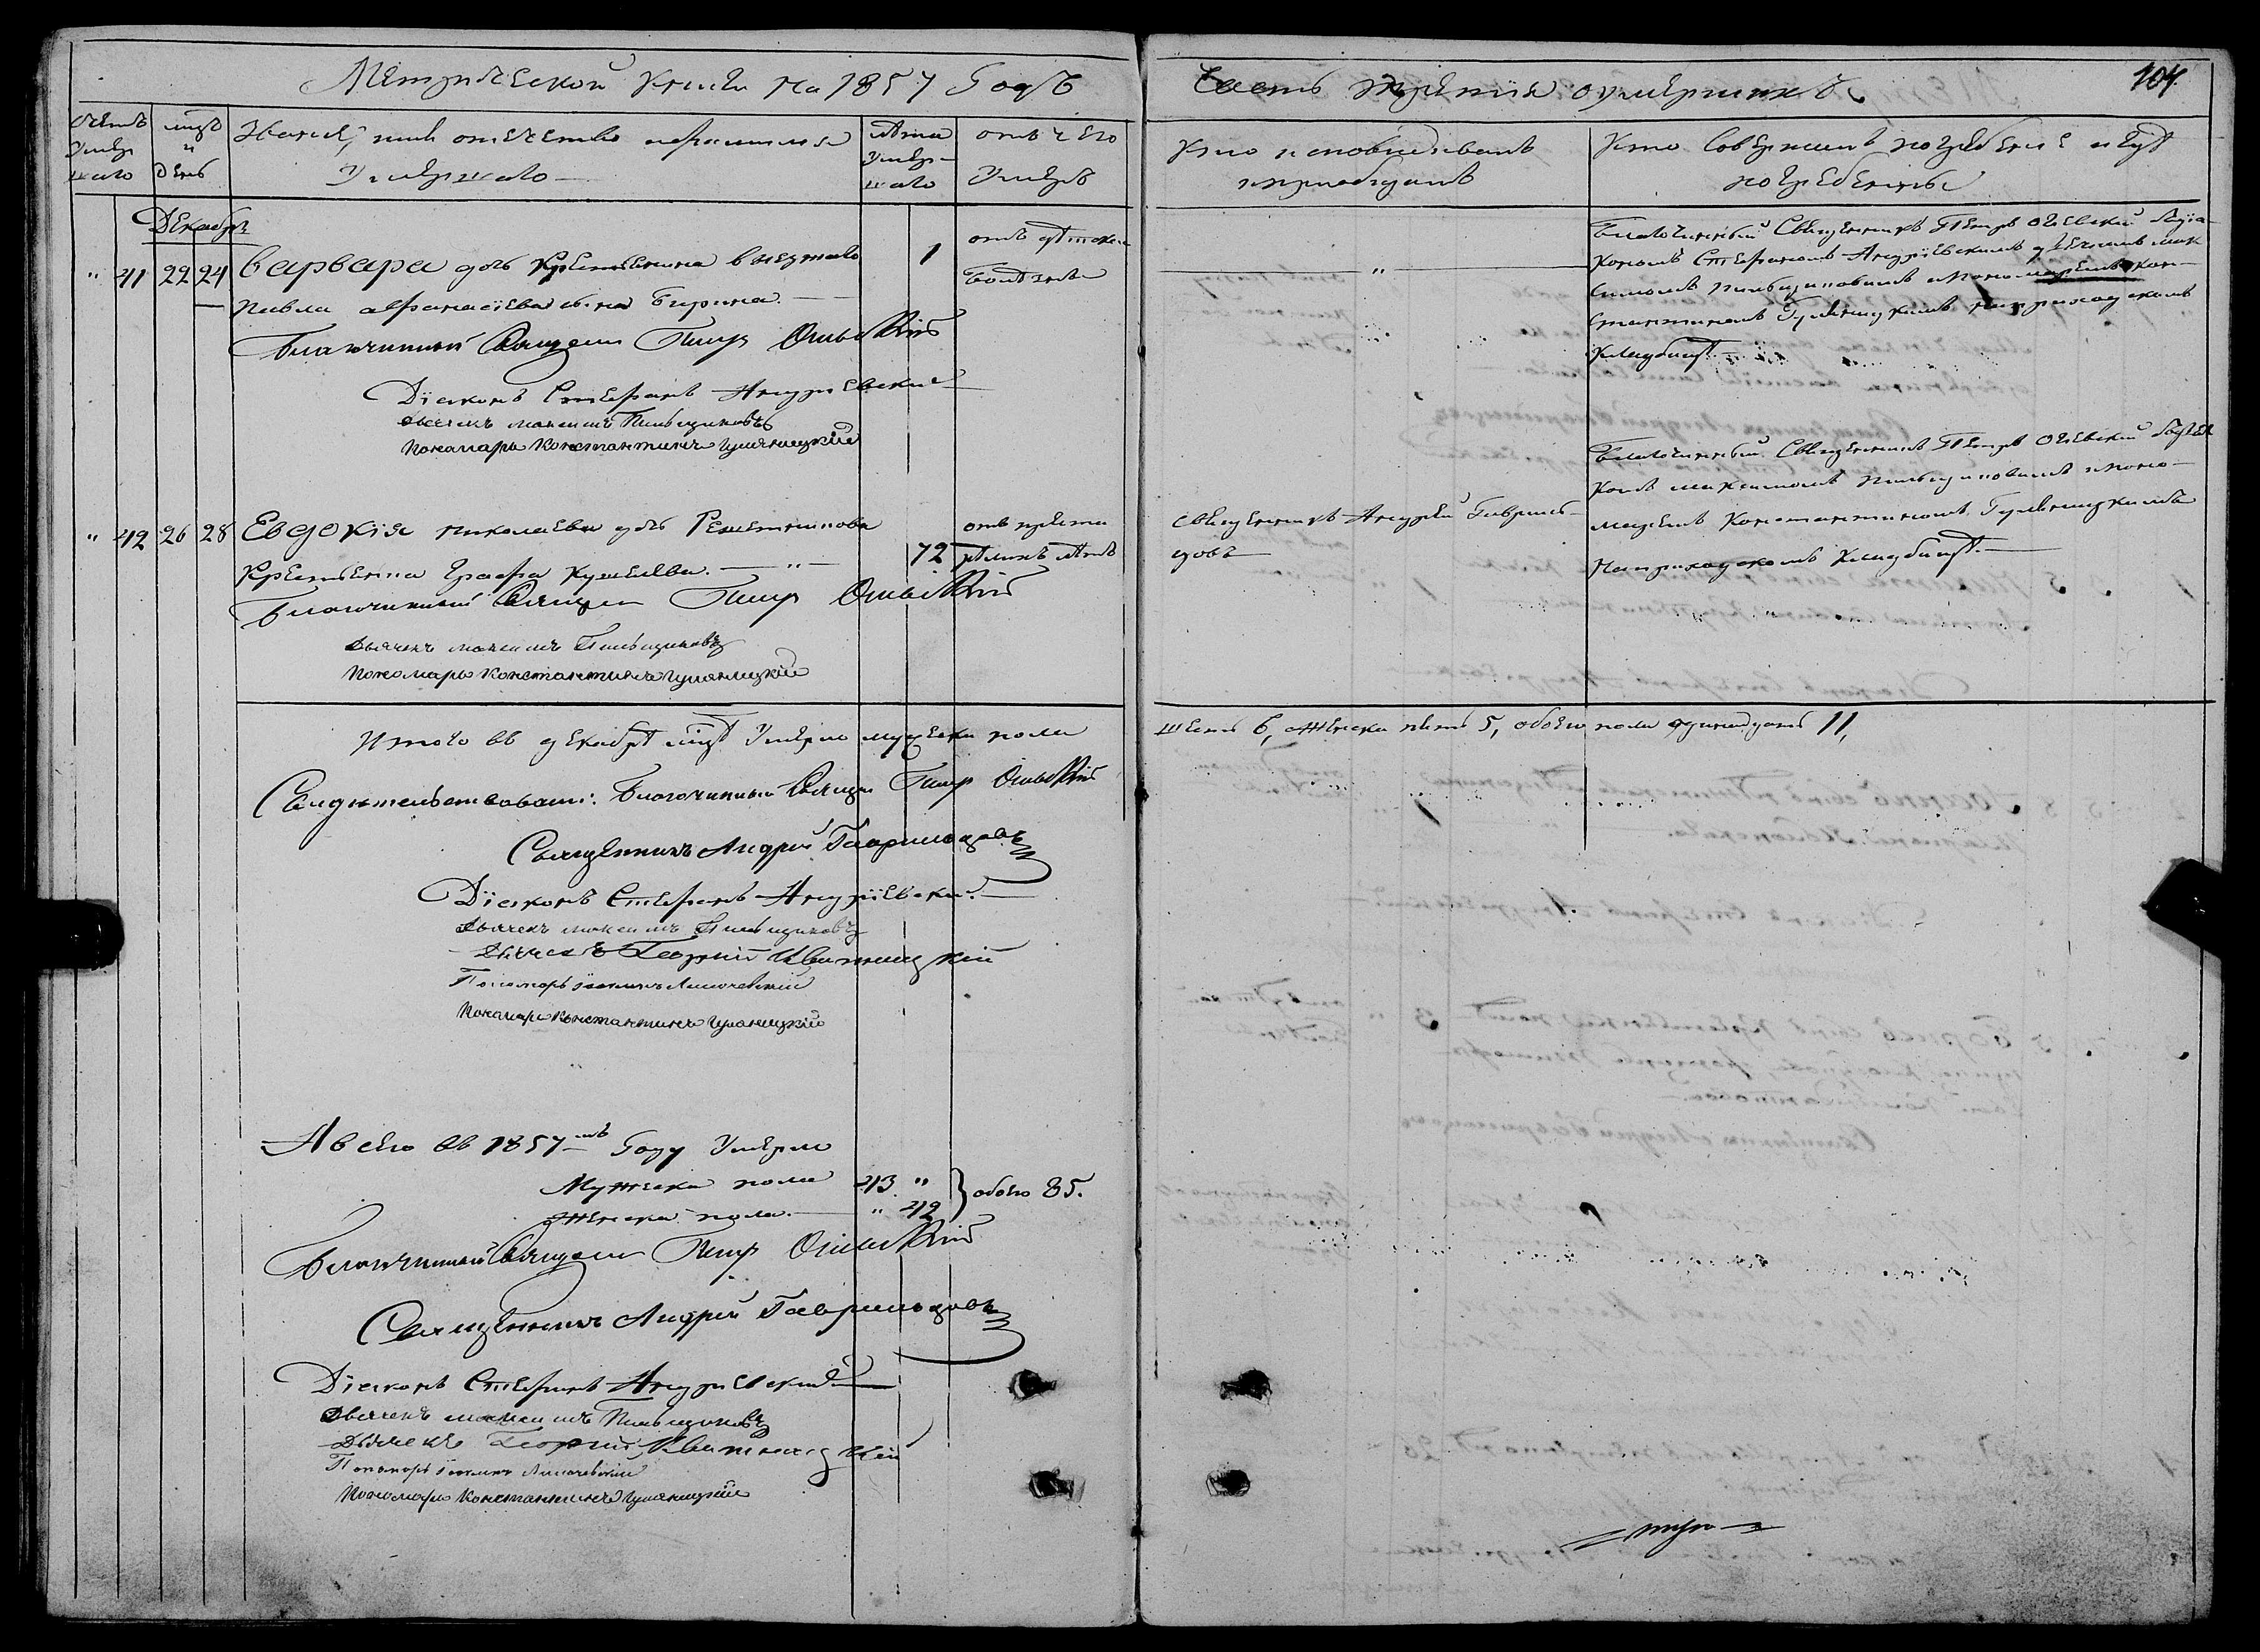 Метрической книги на 1857 Годъ
Часть третія о умершихъ
104
Счетъ умершаго
мцъ и день
Званіе, имя отечество и фамилия
Умершаго
лѣта Умершаго
отъ чего
Умеръ
Кто исповѣдывалъ
и пріобщалъ
Кто совершалъ погребеніе и гдѣ
погребены
Декабрь
" 41 22 24 Варвара дочь Крестьянина
Павла Афанасіева сына Бирина
1
отъ дѣтской
болѣзни
"
Благочинный Священникъ Петръ Огіевскій съ діа-
кономъ Стефаномъ Андріевскимъ дьячкомъ Мак
симомъ Пильщиковымъ и пономаремъ Кон-
стантиномъ Гуляницкимъ на приходскомъ
кладбищѣ
Благочинный Священникъ Петръ Огіевскій
Діаконъ Стефанъ Андріевский
Дьячекъ Максимъ Пильщиковъ
Пономарь Константинъ Гуляницкій
" 42 26 28 Евдокія Николаева дочь Решетникова
Крестьянка Графа Кушелева. "
72
отъ преста
рѣлыхъ лѣтъ
Священникъ Андрей Гавриль-
цовъ
Благочинный Священникъ Петръ Огіевскій съ дьяч
комъ Максимомъ Пильщиковымъ и поно-
маремъ Константиномъ Гуляницкимъ
На приходскомъ кладбищѣ.
Благочинный Священникъ Петръ Огіевскій
Дьячекъ Максимъ Пильщиковъ
Пономарь Константинъ Гуляницкій
Итого въ декабрѣ мцѣ Умерло мужеска пола
шесть 6, женска пять 5, обоего пола одинадцать 11,
Свидетельствовали: Благочинный Священ Петръ Огіевскій
Священникъ Андрей Гаврильцовъ
Діаконъ Стефанъ Андріевский.
Дьячекъ Максимъ Пильщиковъ
Дьячекъ Георгий Квитницкій
Пономарь
Пономарь Константинъ Гуляницкій
А всего въ 1857мъ Году Умерло
Мужеска пола 43 "
Женска пола. " 42
обоего 85.
Благочинный Священ Петръ Огіевскій
Священникъ Андрей Гаврильцовъ
Діаконъ Стефанъ Андріевский
Дьячекъ Максимъ Пильщиковъ
Дьячекъ Георгий Квитницкій
Пономарь
Пономарь Константинъ Гуляницкій